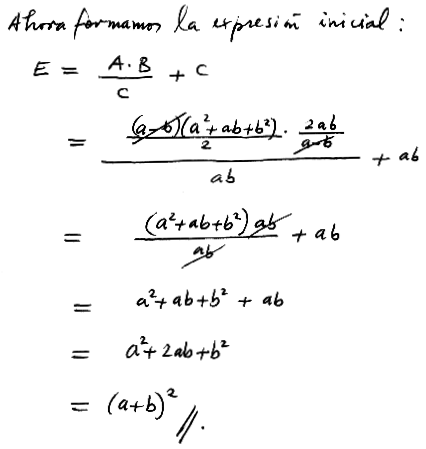 Ahora formamos la expresión inicial :
E = A·B / C + C
= (a-b)(a²+ab+b²) / 2 · 2ab / a-b / ab + ab
= (a²+ab+b²) ab / ab + ab
= a²+ab+b² + ab
= a²+2ab+b²
= (a+b)² //.